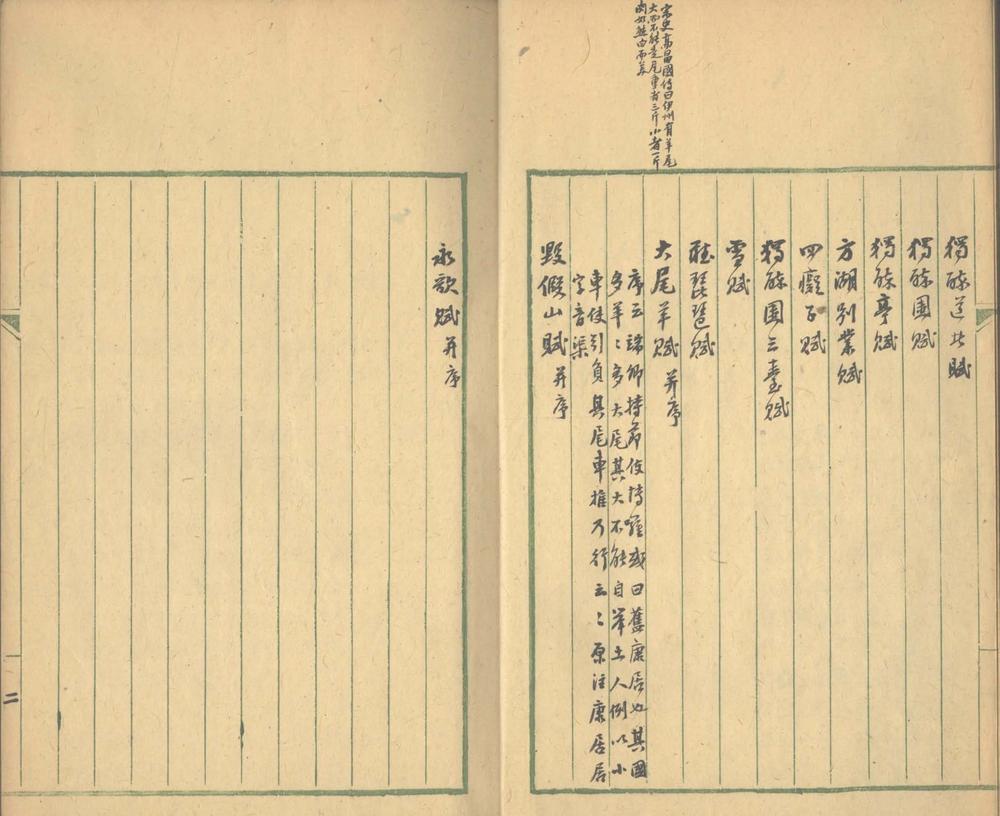 宋史高昌國傳曰伊州有羊尾
大而不能走尾重者三斤小者一斤
肉如熊白而美
獨醉道者賦
獨醉園賦
獨醉亭賦
方湖別業賦
四癡子賦
獨醉園三臺賦
雪賦
聽琵琶賦
大尾羊賦 并序
序云端卿持節使持羅或曰舊康居也其國
多羊〻多大尾其大不能自举土人例以小
車使引負其尾車推乃行云〻原注康居居
字音渠
毀假山賦 并序
永歌賦 并序
二